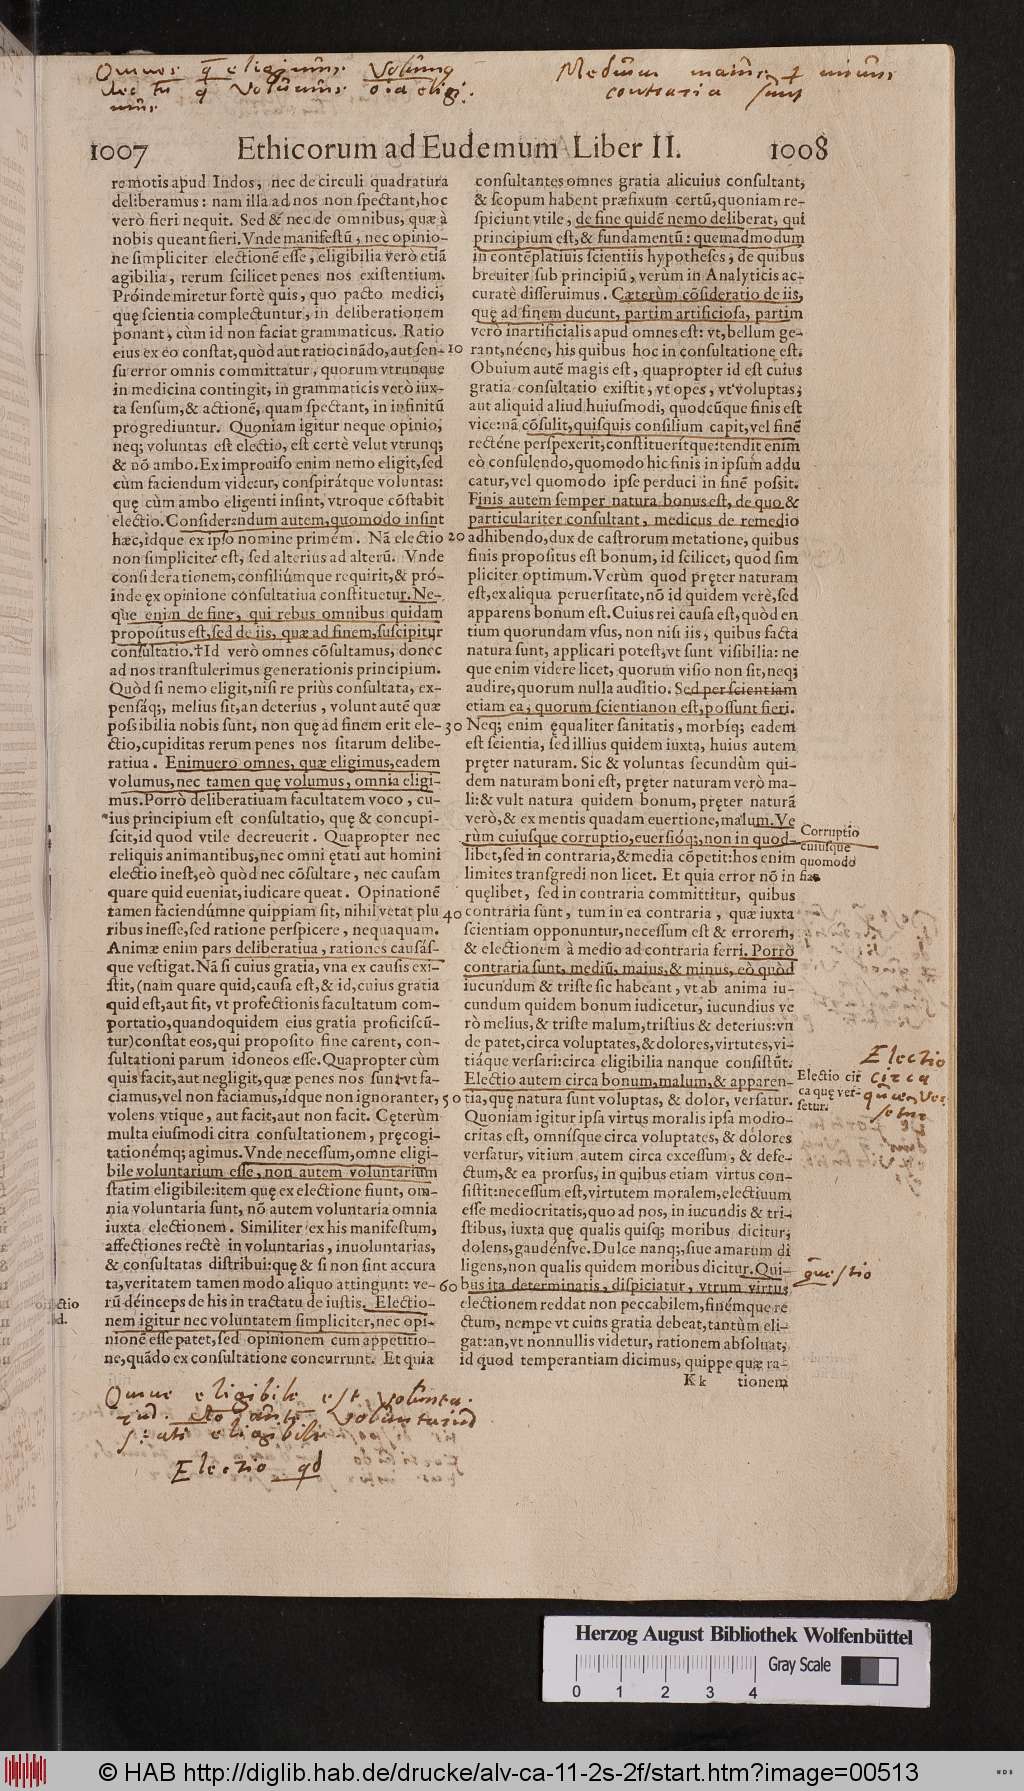 Omnes q̄ eligimus volumus
nec tn̄ q̄ volumus oīa eligi
mus
Medium maius & minus
contraria sunt
1007 Ethicorum ad Eudemum Liber II. 1008
remotis apud Indos, nec de circuli quadratura
deliberamus: nam illa ad nos non spectant, hoc
verò fieri nequit. Sed & nec de omnibus, quæ à
nobis queant fieri. Vnde manifestũ, nec opinio-
nẽ simpliciter electionẽ esse, eligibilia verò etiã
agibilia, rerum scilicet penes nos existentium.
Próinde miretur fortè quis, quo pacto medici,
quę scientia complectuntur, in deliberationem
ponant, cùm id non faciat grammaticus. Ratio
eius ex eo constat, quòd aut ratiocinãdo, aut sen-
su error omnis committatur, quorum vtrunque
in medicina contingit, in grammaticis verò iux-
ta sensum, & actionẽ, quam spectant, in infinitũ
progrediuntur. Quoniam igitur neque opinio,
neq; voluntas est electio, est certè velut vtrunq;
& nõ ambo. Ex improuiso enim nemo eligit, sed
cùm faciendum videtur, conspirátque voluntas:
quę cùm ambo eligenti insint, vtroque cõstabit
electio. Considerandum autem, quomodo insint
hæc, idque ex ipso nomine primém. Nã electio
non simpliciter est, sed alterius ad alterũ. Vnde
considerationem, consiliúmque requirit, & pró-
inde ęx opinione consultatiua constituetur. Ne-
que enim de fine, qui rebus omnibus quidam
propositus est, sed de iis, quæ ad finem, suscipitur
consultatio. †Id verò omnes cõsultamus, donec
ad nos transtulerimus generationis principium.
Quòd si nemo eligit, nisi re priùs consultata, ex-
pensáq;, melius sit, an deterius, volunt autẽ quæ
possibilia nobis sunt, non quę ad finem erit ele-
ctio, cupiditas rerum penes nos sitarum delibe-
ratiua. Enimuero omnes, quæ eligimus, eadem
volumus, nec tamen quę volumus, omnia eligi-
mus. Porrò deliberatiuam facultatem voco, cu-
ius principium est consultatio, quę & concupi-
scit, id quod vtile decreuerit. Quapropter nec
reliquis animantibus, nec omni ętati aut homini
electio inest, eò quòd nec cõsultare, nec causam
quare quid eueniat, iudicare queat. Opinationẽ
tamen faciendúmne quippiam sit, nihil vetat plu
ribus inesse, sed ratione perspicere, nequaquam.
Animæ enim pars deliberatiua, rationes causás-
que vestigat. Nã si cuius gratia, vna ex causis exi-
stit, (nam quare quid, causa est, & id, cuius gratia
quid est, aut sit, vt profectionis facultatum com-
portatio, quandoquidem eius gratia proficiscũ-
tur) constat eos, qui proposito fine carent, con-
sultationi parum idoneos esse. Quapropter cùm
quis facit, aut negligit, quæ penes nos sunt vt fa-
ciamus, vel non faciamus, idque non ignoranter,
volens vtique, aut facit, aut non facit. Cęterùm
multa eiusmodi citra consultationem, pręcogi-
tationémq; agimus. Vnde necessum, omne eligi-
bile voluntarium esse, non autem voluntarium
statim eligibile: item quę ex electione fiunt, om-
nia voluntaria sunt, nõ autem voluntaria omnia
iuxta electionem. Similiter ex his manifestum,
affectiones rectè in voluntarias, inuoluntarias,
& consultatas distribui: quę & si non sint accura
ta, veritatem tamen modo aliquo attingunt: ve-
rũ déinceps de his in tractatu de iustis. Electio-
nem igitur nec voluntatem simpliciter, nec opi-
nionẽ esse patet, sed opinionem cum appetitio-
ne, quãdo ex consultatione concurrunt. Et quia
10
20
30
40
50
60
consultantes omnes gratia alicuius consultant,
& scopum habent præfixum certũ, quoniam re-
spiciunt vtile, de fine quidẽ nemo deliberat, qui
principium est, & fundamentũ: quemadmodum
in contẽplatiuis scientiis hypotheses, de quibus
breuiter sub principiũ, verùm in Analyticis ac-
curatè disseruimus. Cæterùm cõsideratio de iis,
quę ad finem ducunt, partim artificiosa, partim
verò inartificialis apud omnes est: vt, bellum ge-
rant, nécne, his quibus hoc in consultatione est.
Obuium autẽ magis est, quapropter id est cuius
gratia consultatio existit, vt opes, vt voluptas,
aut aliquid aliud huiusmodi, quodcũque finis est
vice: nã cõsulit, quisquis consilium capit, vel finẽ
recténe perspexerit, constituerítque: tendit enim
eò consulendo, quomodo hic finis in ipsum addu
catur, vel quomodo ipse perduci in finẽ possit.
Finis autem semper natura bonus est, de quo &
particulariter consultant, medicus de remedio
adhibendo, dux de castrorum metatione, quibus
finis propositus est bonum, id scilicet, quod sim
pliciter optimum. Verùm quod pręter naturam
est, ex aliqua peruersitate, nõ id quidem verè, sed
apparens bonum est. Cuius rei causa est, quòd en
tium quorundam vsus, non nisi iis, quibus facta
natura sunt, applicari potest, vt sunt visibilia: ne
que enim videre licet, quorum visio non sit, neq;
audire, quorum nulla auditio. Sed per scientiam
etiam ea, quorum scientia non est, possunt fieri.
Neq; enim ęqualiter sanitatis, morbíq; eadem
est scientia, sed illius quidem iuxta, huius autem
pręter naturam. Sic & voluntas secundùm qui-
dem naturam boni est, pręter naturam verò ma-
li: & vult natura quidem bonum, pręter naturã
verò, & ex mentis quadam euertione, malum. Ve
rùm cuiusque corruptio, euersióq;, non in quod-
libet, sed in contraria, & media cõpetit: hos enim
limites transgredi non licet. Et quia error nõ in
quęlibet, sed in contraria committitur, quibus
contraria sunt, tum in ea contraria, quæ iuxta
scientiam opponuntur, necessum est & errorem,
& electionem à medio ad contraria ferri. Porrò
contraria sunt, mediũ, maius, & minus, eò quòd
iucundum & triste sic habeant, vt ab anima iu-
cundum quidem bonum iudicetur, iucundius ve
rò melius, & triste malum, tristius & deterius: vn
de patet, circa voluptates, & dolores, virtutes, vi-
tiáque versari: circa eligibilia nanque consistũt.
Electio autem circa bonum, malum, & apparen-
tia, quę natura sunt voluptas, & dolor, versatur.
Quoniam igitur ipsa virtus moralis ipsa medio-
critas est, omnísque circa voluptates, & dolores
versatur, vitium autem circa excessum, & defe-
ctum, & ea prorsus, in quibus etiam virtus con-
sistit: necessum est, virtutem moralem, electiuum
esse mediocritatis, quo ad nos, in iucundis & tri-
stibus, iuxta quę qualis quisq; moribus dicitur,
dolens, gaudénsve. Dulce nanq;, siue amarum di
ligens, non qualis quidem moribus dicitur. Qui-
bus ita determinatis, dispiciatur, vtrum virtus
electionem reddat non peccabilem, finémque re
ctum, nempe vt cuius gratia debeat, tantùm eli-
gat: an, vt nonnullis videtur, rationem absoluat,
id quod temperantiam dicimus, quippe quæ ra-
Kk tionem
Corruptio
cuiusque
quomodo
fiat
Electio cir
ca quę ver-
setur.
Electio
circa
quae ver
setur
quęstio
Omne eligibile est volunta
riũd. nō autē voluntariũd
statī eligibile
Electio qd
Herzog August Bibliothek Wolfenbüttel
Gray Scale
0 1 2 3 4
© HAB http://diglib.hab.de/drucke/alv-ca-11-2s-2f/start.htm?image=00513